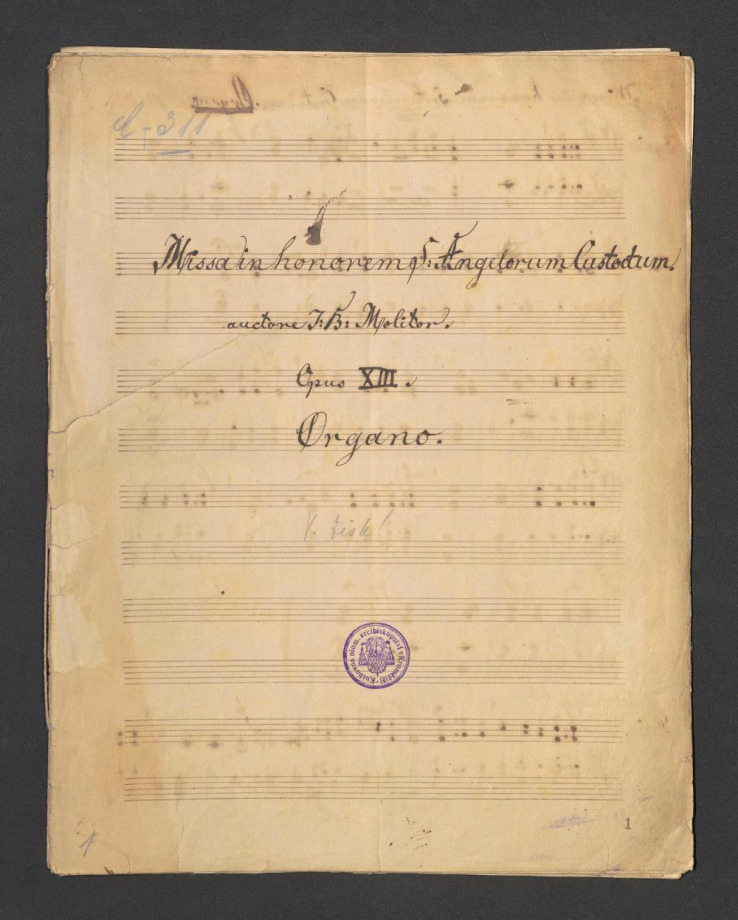 C-311
Missa in honorem S: Angelorum Custodum.
auctore J: B: Molitor.
Opus XIII.
Organo.
V. tisk!
Knihovna olom. arcibiskupství v Kroměříži
1
1